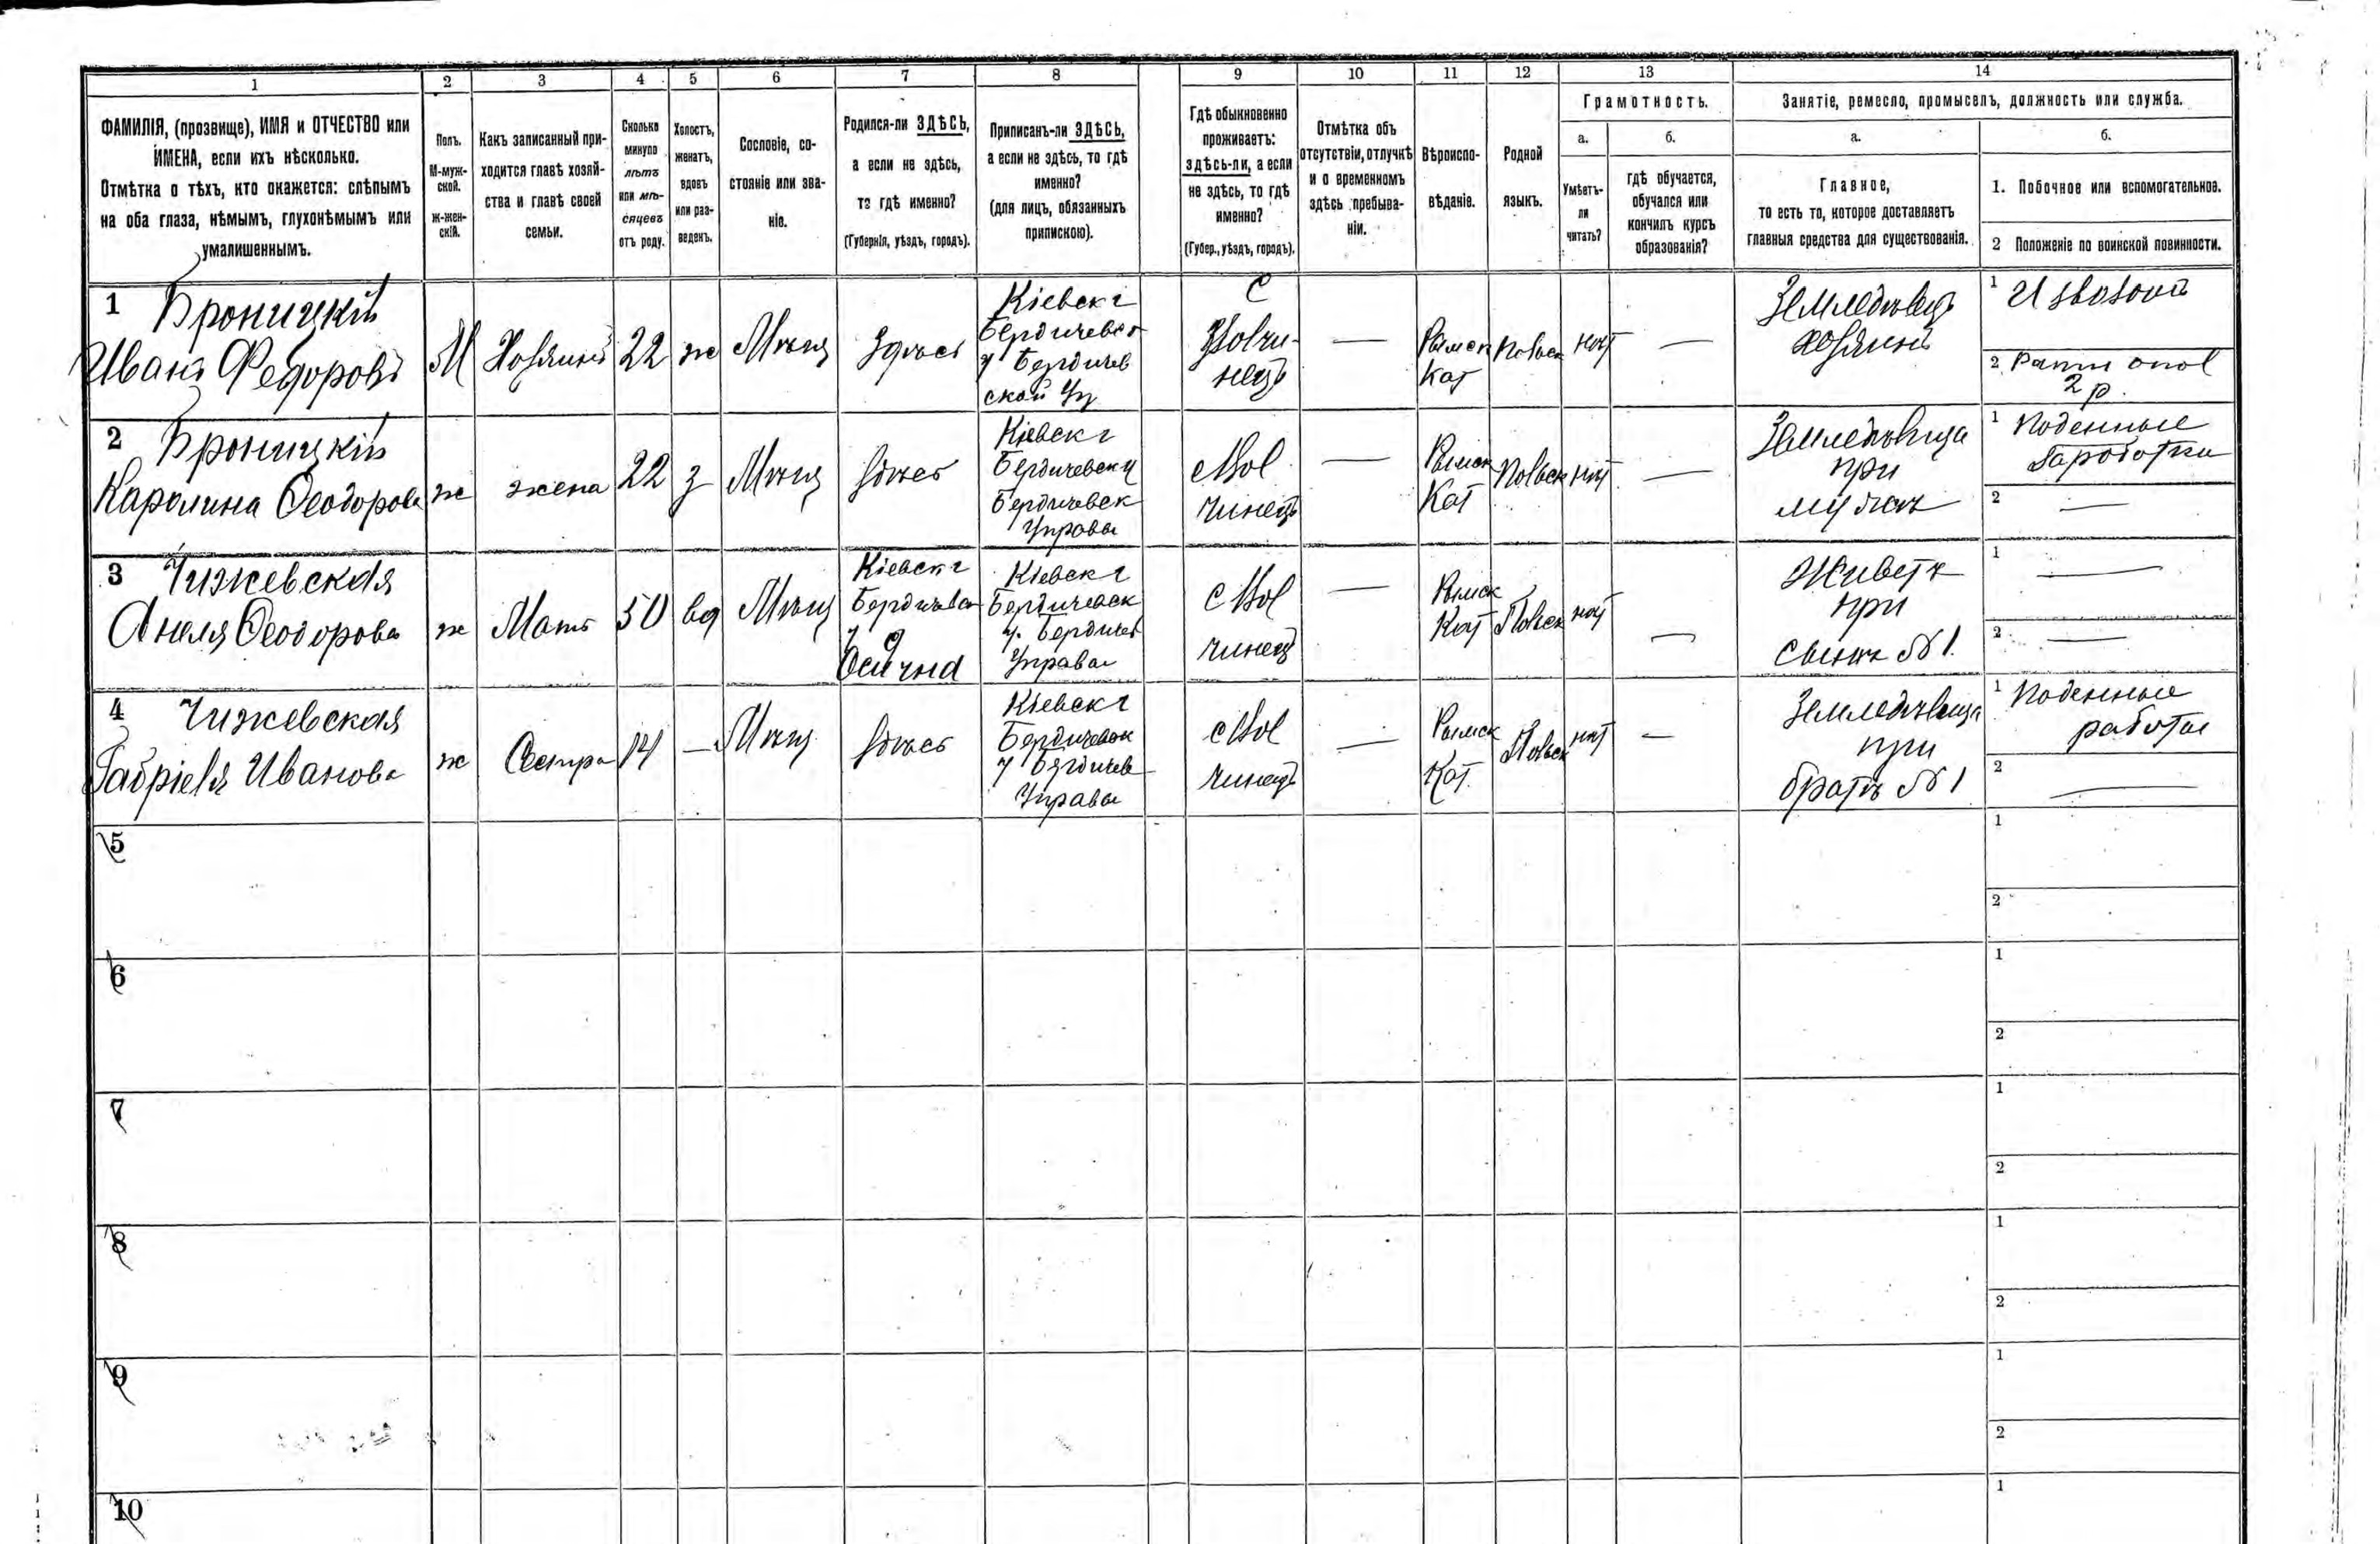 1
2
3
4
5
6
7
8
9
10
11
12
13
14
ФАМИЛІЯ, (прозвище), ИМЯ и ОТЧЕСТВО или
ИМЕНА, если ихъ нѣсколько.
Отмѣтка о тѣхъ, кто окажется: слѣпымъ
на оба глаза, нѣмымъ, глухонѣмымъ или
умалишеннымъ.
Полъ.
М-муж-
ской.
Ж-жен-
скій.
Какъ записанный при-
ходится главѣ хозяй-
ства и главѣ своей
семьи.
Сколько
минуло
лѣтъ
или мѣ-
сяцевъ
отъ роду.
Холостъ,
женатъ,
вдовъ
или раз-
веденъ.
Сословіе, со-
стояніе или зва-
ніе.
Родился-ли ЗДѢСЬ,
а если не здѣсь,
то гдѣ именно?
(Губернія, уѣздъ, городъ).
Приписанъ-ли ЗДѢСЬ,
а если не здѣсь, то гдѣ
именно?
(для лицъ, обязанныхъ
припискою).
Гдѣ обыкновенно
проживаетъ:
здѣсь-ли, а если
не здѣсь, то гдѣ
именно?
(Губер., уѣздъ, городъ).
Отмѣтка объ
отсутствіи, отлучкѣ
и о временномъ
здѣсь пребыва-
ніи.
Вѣроиспо-
вѣданіе.
Родной
языкъ.
Грамотность.
а.
Умѣетъ-
ли
читать?
б.
гдѣ обучается,
обучался или
кончилъ курсъ
образованія?
Занятіе, ремесло, промыселъ, должность или служба.
а.
Главное,
то есть то, которое доставляетъ
главныя средства для существованія.
б.
1. Побочное или вспомогательное.
2 Положеніе по воинской повинности.
1 Броницкій
Иванъ Федоровъ
М
Хозяинъ
22
ж
Мѣщ
Здѣсь
Кіевск г
Бердичевск
у Бердичев
ской Уп
С
Волчи-
нецъ
—
Римск
Кат
Польск
нѣт
—
Земледѣлецъ
хозяинъ
1 Извозомъ
2 Ратн опол
2 р.
2 Броницкій
Каролина Феодорова
ж
жена
22
з
Мѣщ
Здѣсь
Кіевск г
Бердичевск у
Бердичевск
Управы
с Вол
чинецъ
—
Римск
Кат
Польск
нѣт
—
Земледѣлица
при
мужѣ
1 Поденные
Заработки
2 —
3 Чижевская
Анеля Феодорова
ж
Мать
50
вд
Мѣщ
Кіевск г
Бердичевск
у с
Осична
Кіевск г
Бердичевск
у. Бердичев
Управы
с Вол
чинец
—
Римск
Кат
Польск
нѣт
—
Живетъ
при
сынѣ № 1.
1 —
2 —
4 Чижевская
Габріеля Иванова
ж
Сестра
14
—
Мѣщ
Здѣсь
Кіевск г
Бердичевск
у Бердичев
Управы
с Вол
чинецъ
—
Римск
Кат.
Польск
нѣт
—
Земледѣлица
при
братѣ № 1
1 Поденные
работы
2 —
5
1
2
6
1
2
7
1
2
8
1
2
9
1
2
10
1